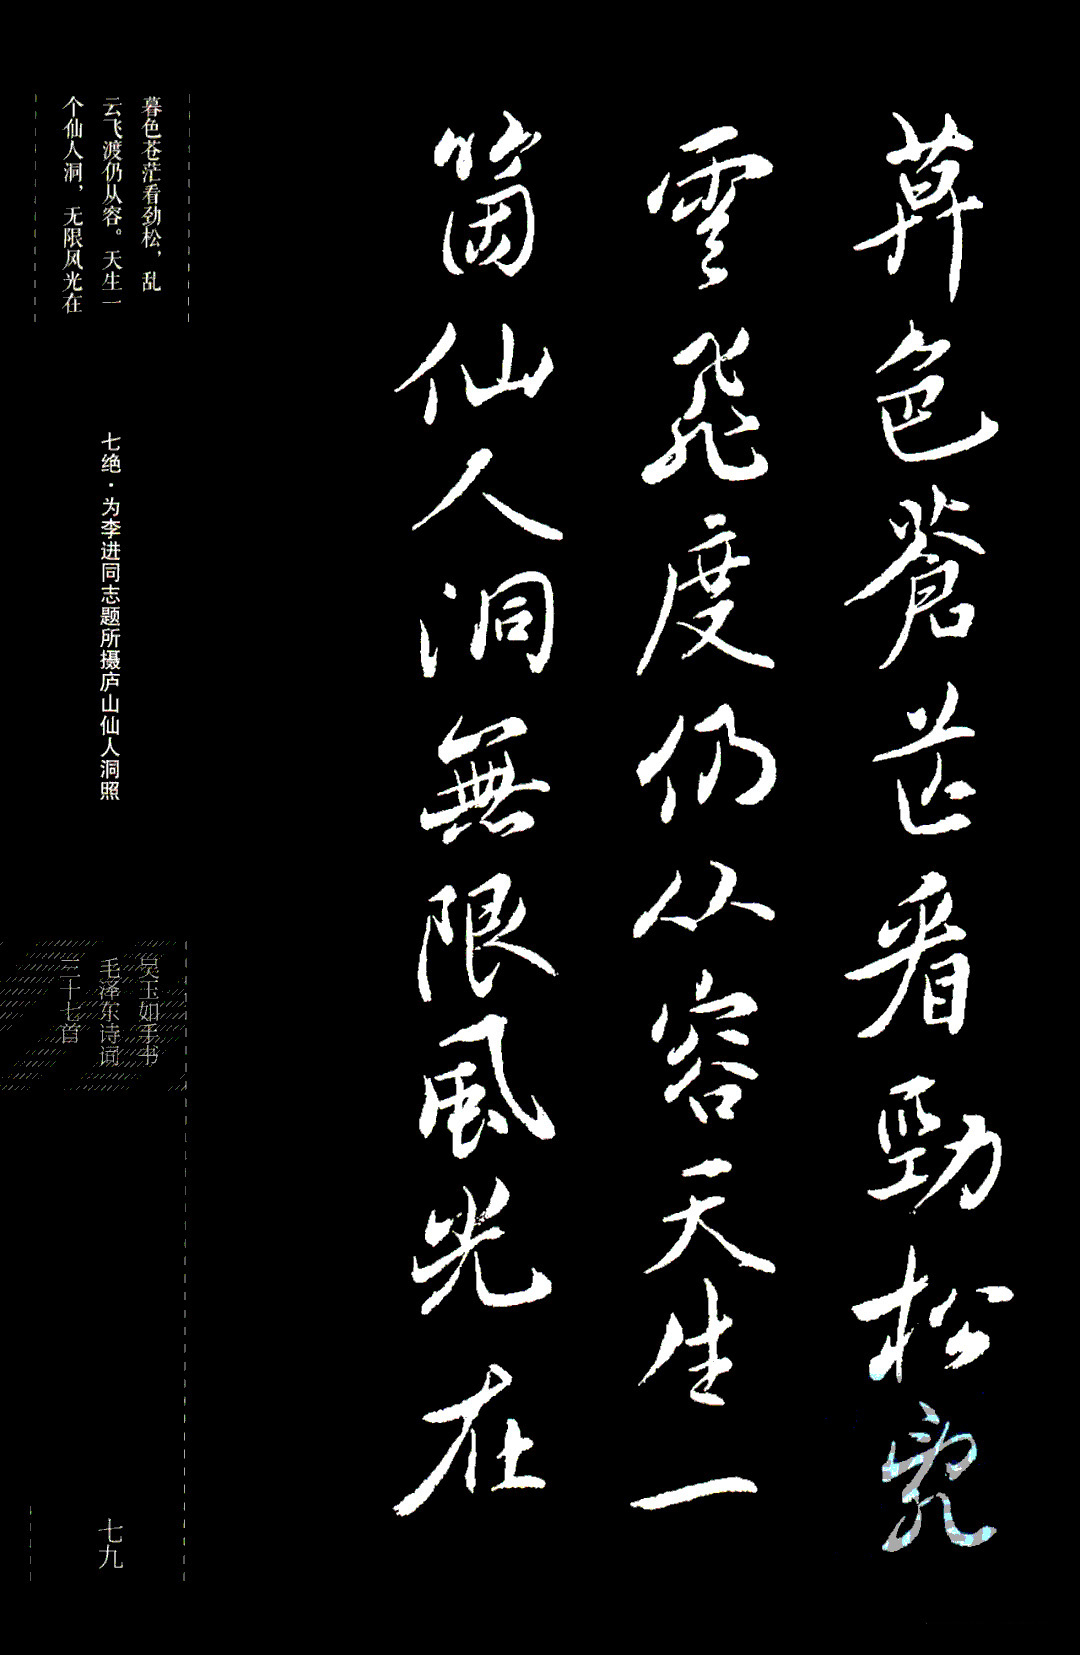 暮色蒼茫看勁松亂
雲飛度仍从容天生一
箇仙人洞無限風光在
暮色苍茫看劲松，乱
云飞渡仍从容。天生一
个仙人洞，无限风光在
七绝·为李进同志题所摄庐山仙人洞照
吴玉如手书
毛泽东诗词
三十七首
七九